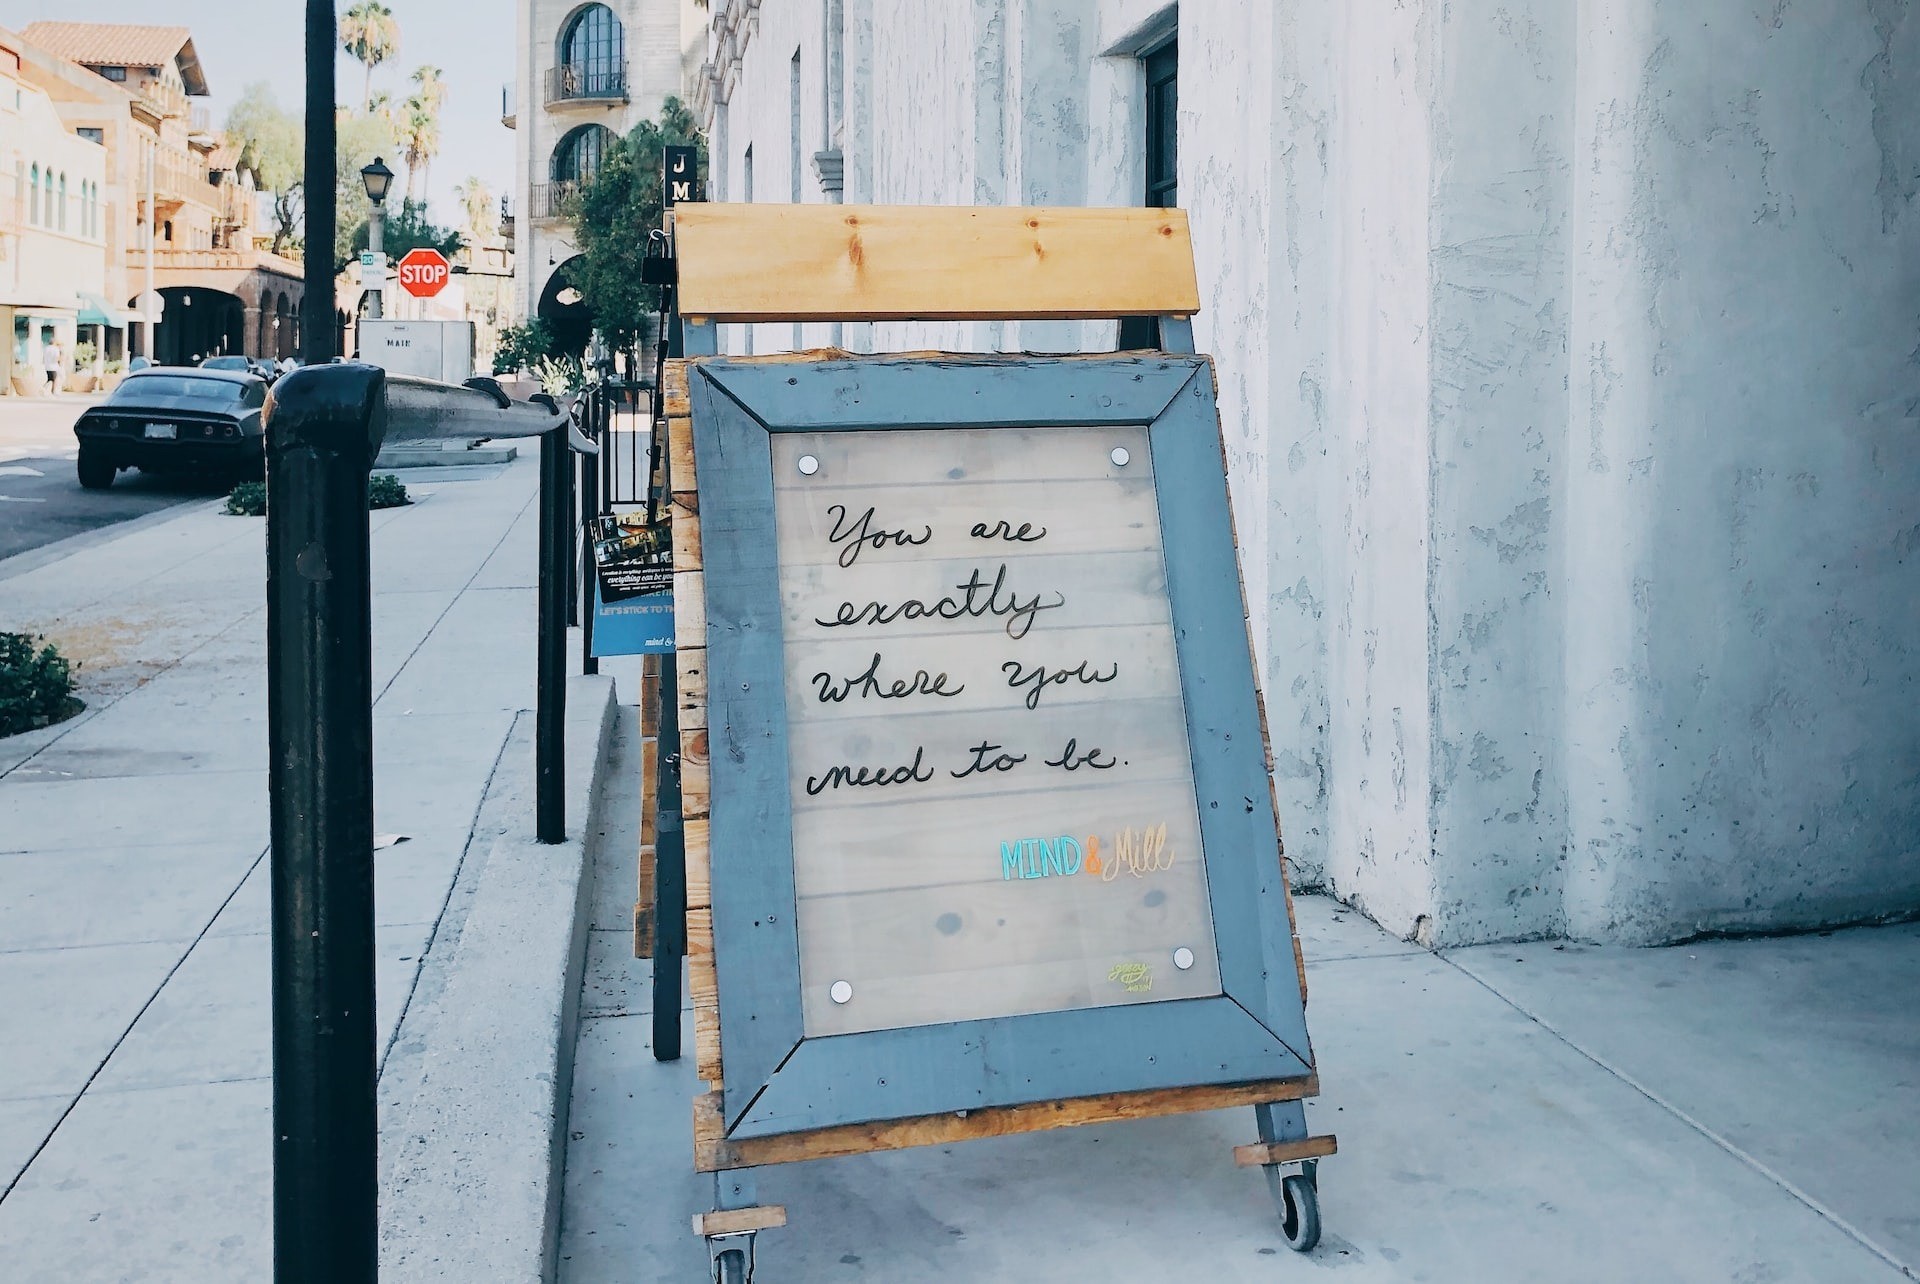 J
M
STOP
20
MAIN
You are
exactly
where you
need to be.
MIND & Mill
everything can be
LET'S STICK TO
mind &